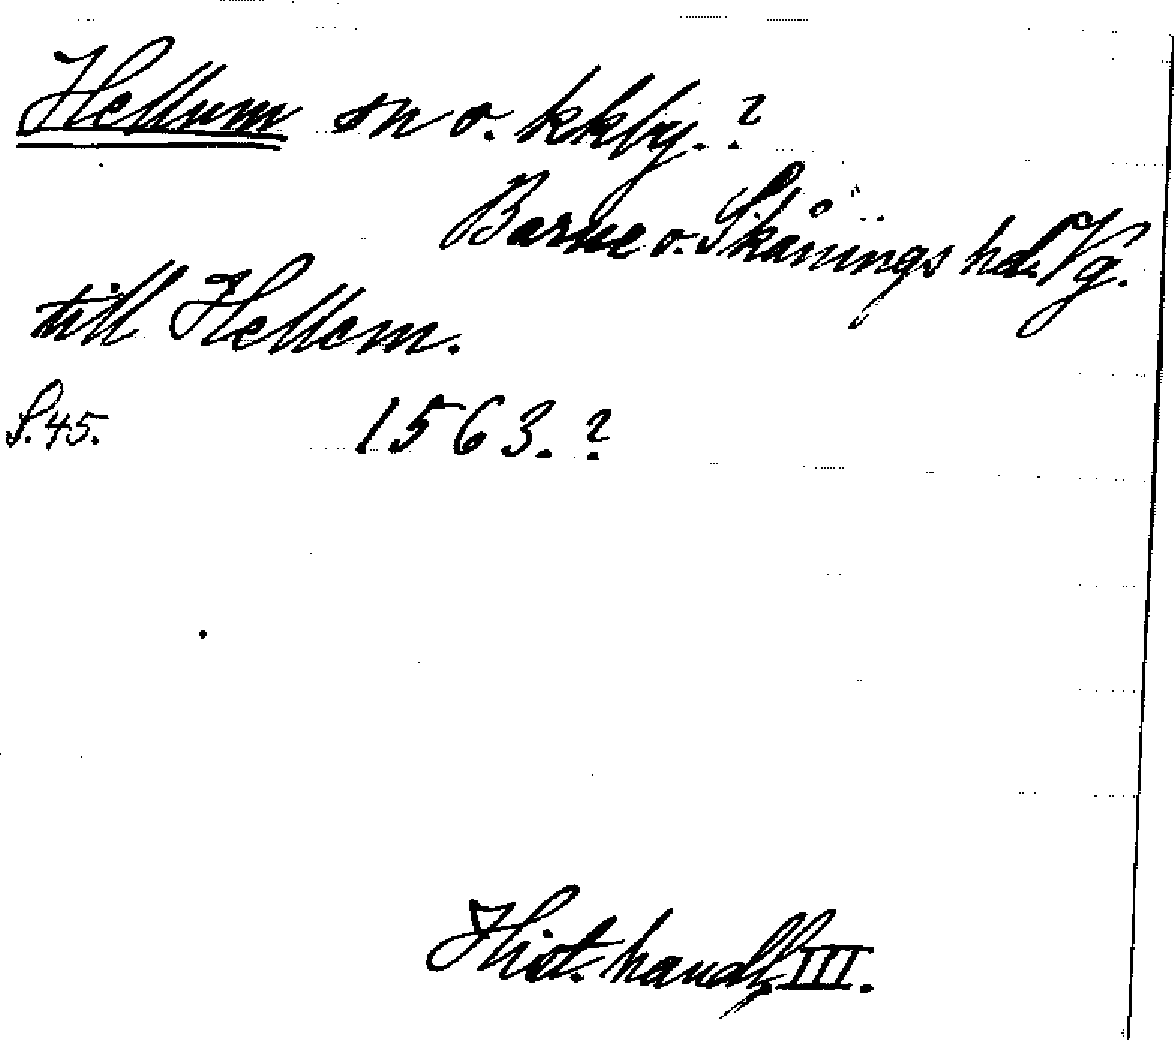 Hellum sn o. kkby. ?
Barne o. Skånings hd. Vg.
till Hellem.
S. 45. 1563. ?
Hist. handl. III.